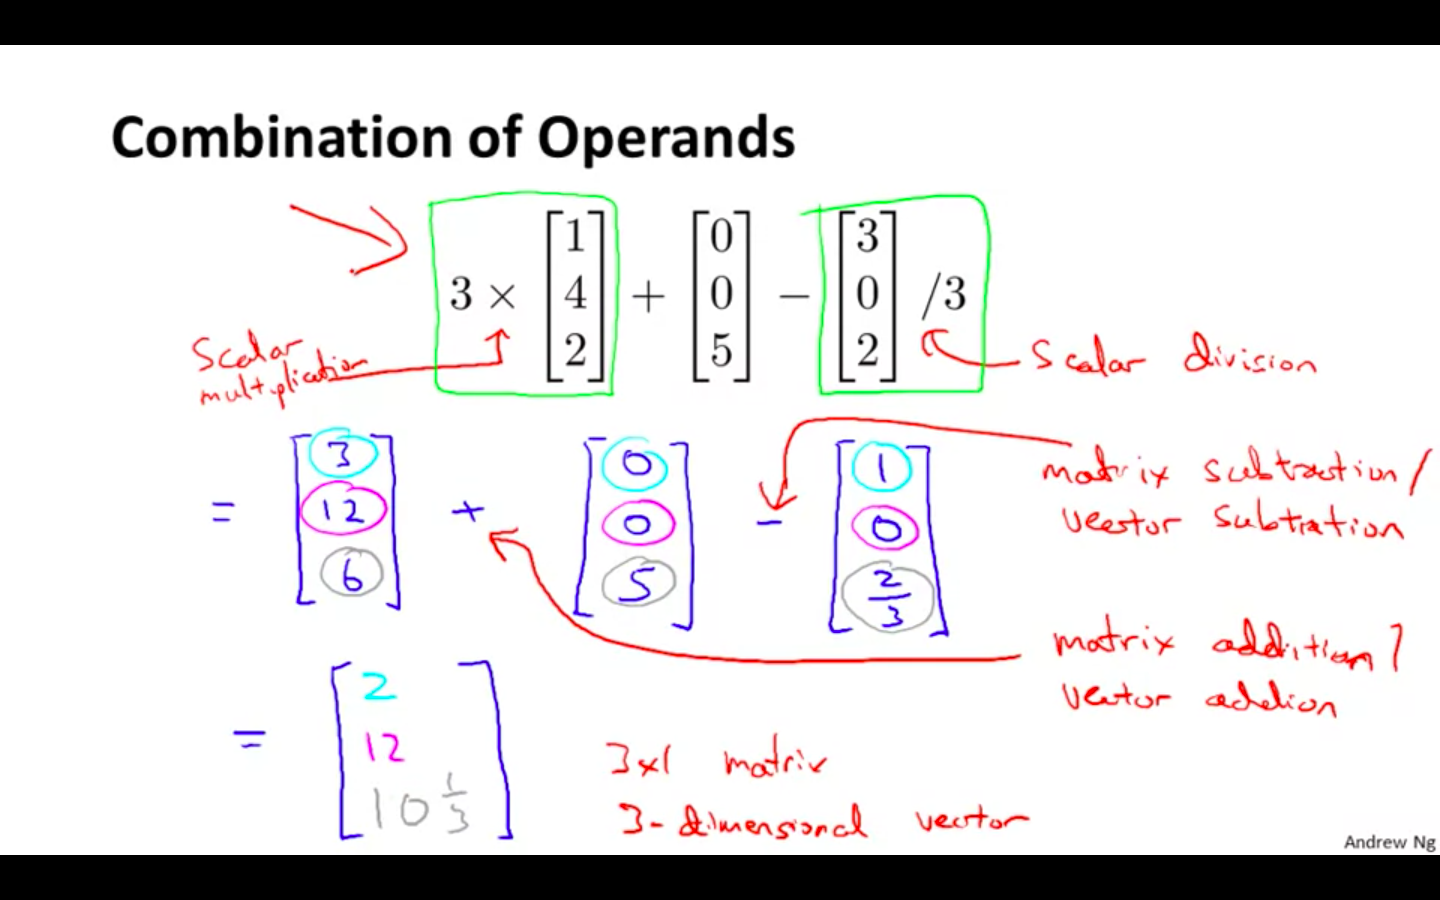 Combination of Operands
3 × [1 4 2] + [0 0 5] − [3 0 2] /3
Scalar
multiplication
Scalar division
= [3 12 6] + [0 0 5] - [1 0 2/3]
matrix subtraction/
vector subtration
matrix addition/
vector
= [2 12 10 1/3]
3x1 matrix
3-dimensional vector
Andrew Ng